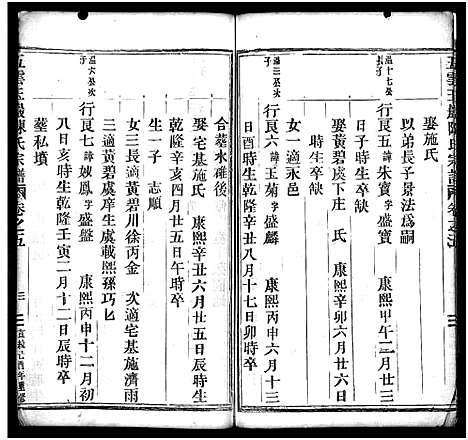 五雲玉巖陳氏宗譜 卷之五
娶施氏
溫十七公次子
以弟長子景法爲嗣
行良五 諱朱寶 字盛寶 康熙甲午二月廿三
日子時生卒缺
娶黃碧虞下庄 氏 康熙辛丑六月廿六日
時生卒缺 二適永邑
行良六 諱王菊 字盛麟 康熙丙申六月十三
日酉時生乾隆辛丑八月十七日卯時卒
合葬水碓後
娶宅基施氏 康熙辛丑六月廿五日辰時生
乾隆辛亥四月廿五日午時卒
生一子 志順
女三長適黃碧川徐丙金 次適宅基施濟雨
三適黃碧虞庠生虞載熙孫巧匕
溫六公次子
行良七 諱妫鳳 字盛盤 康熙丙申十二月初
八日亥時生乾隆壬寅二月十二日辰時卒
墓私墳
五雲玉巖陳氏宗譜 卷之五
三
宣統己酉年重修